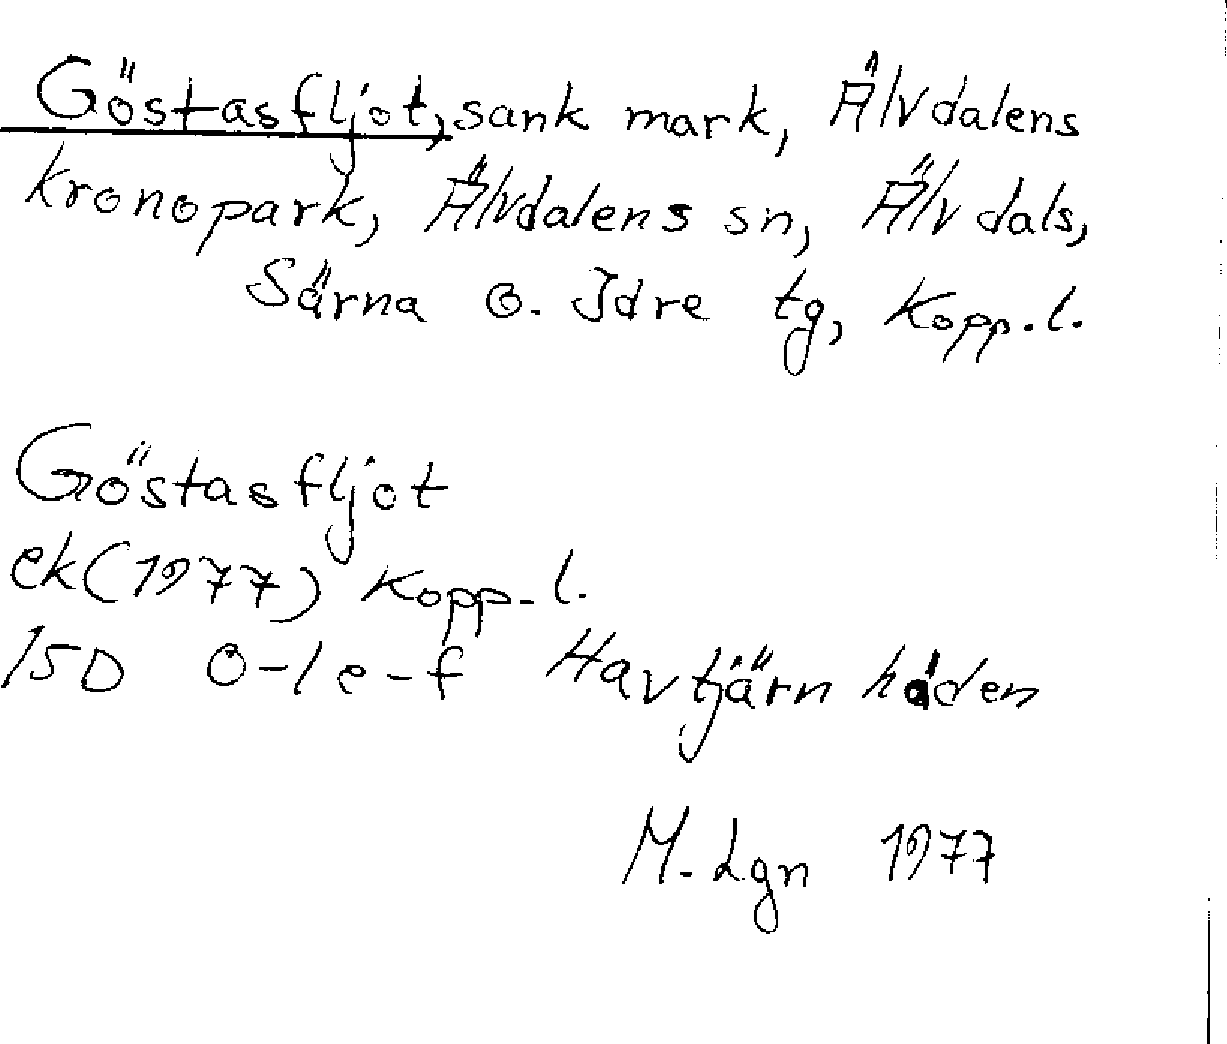 Göstasfljot, sank mark, Älvdalens
kronopark, Älvdalens sn, Älvdals,
Särna o. Idre tg, Kopp.l.
Göstasfljot
ek (1977) Kopp-l.
15D 0-1 e-f Havtjärnhåden
M-Lgn 1977